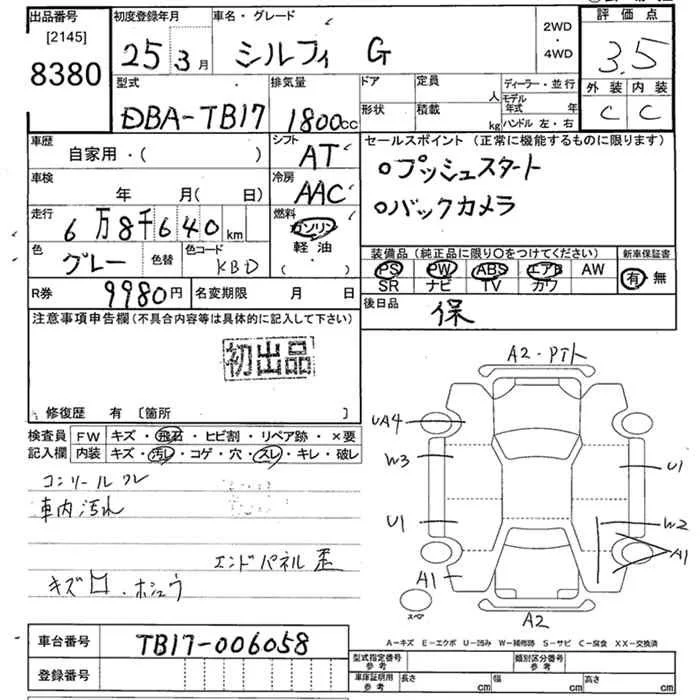 出品番号 初度登録年月 車名・グレード 2WD・4WD 評価点
[2145]
8380 25 3月 シルフィ G 3.5
型式 排気量 ドア 定員 人 ディーラー・並行 外装 内装
DBA-TB17 1800cc 形状 積載 kg モデル年式 年 ハンドル 左・右 C C
車歴 自家用・( ) シフト AT セールスポイント (正常に機能するものに限ります)
車検 年 月( 日) 冷房 AAC ○プッシュスタート
○バックカメラ
走行 6万8千640km 燃料 ガソリン 軽油 ・( )
色 グレー 色替 色コード KBD 装備品 (純正品に限り○をつけてください) 新車保証書
PS PW ABS エアB AW 有 無
SR ナビ TV カワ
R券 9980円 名変期限 月 日 後日品 保
注意事項申告欄 (不具合内容等は具体的に記入して下さい)
初出品
修復歴 有 [箇所 ]
検査員 FW キズ・飛石・ヒビ割・リペア跡・×要
記入欄 内装 キズ・汚レ・コゲ・穴・スレ・キレ・破レ
車内汚れ
エンドパネル歪
キズ ・ホシュウ
A2・PTト
UA4
W3
U1
U1
W2
A1
A1
スペア
A2
車台番号 TB17-006058
登録番号
A-キズ E-エクボ U-凹み W-補修跡 S-サビ C-腐食 XX-交換済
型式指定番号 参考 類別区分番号 参考
車庫証明用 参考 長さ cm 幅 cm 高さ cm